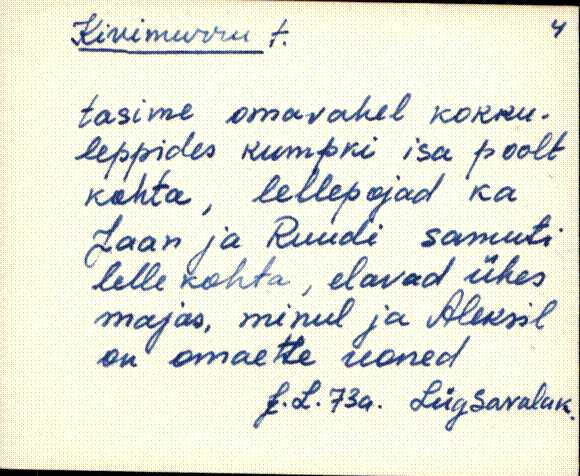 Kivimurru t. 4
tasime omavahel kokku-
leppides kumpki isa poolt
kohta, lellepojad ka
Jaan ja Ruudi samuti
lelle kohta, elavad ühes
majas, minul ja Aleksil
on omaette uoned
J.L. 73a. Liigsavaluk.